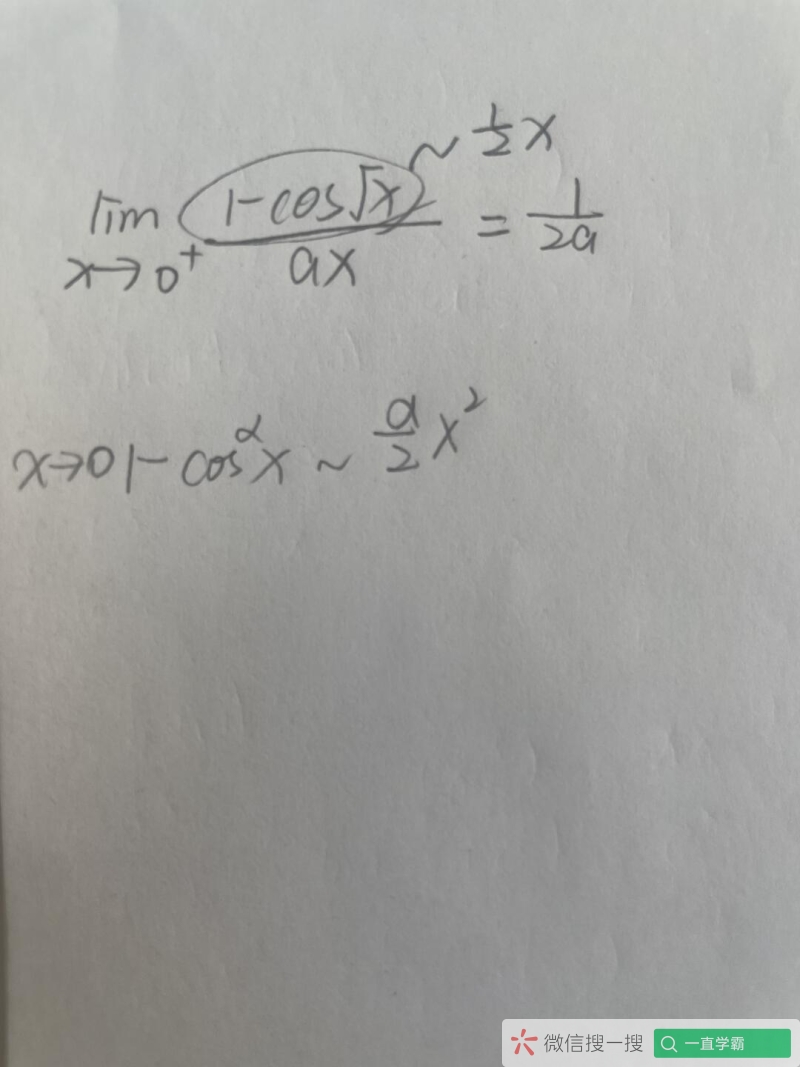 lim x→0⁺ (1-cos√x)/(ax) = 1/(2a)
~ 1/2 x
x→0 1-cos^α x ~ α/2 x²
微信搜一搜 一直学霸